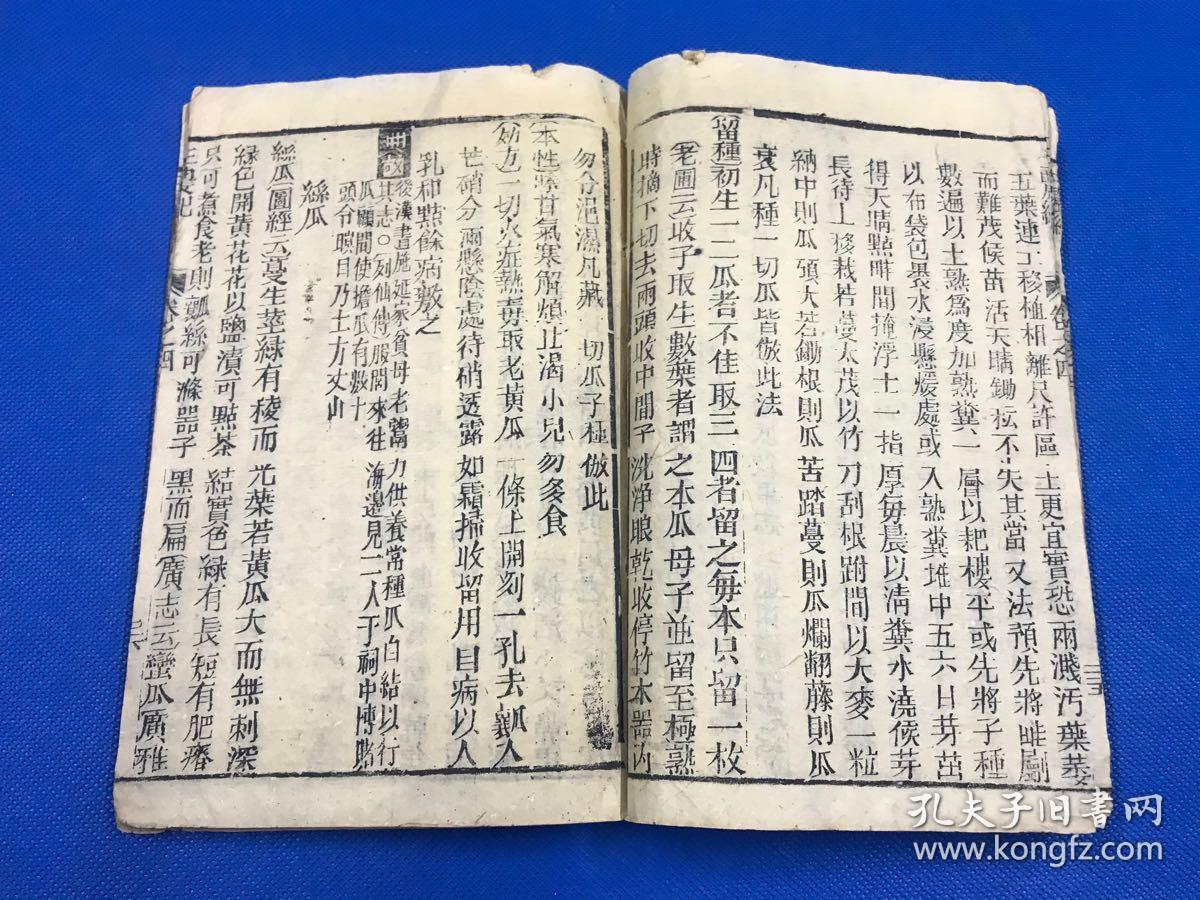 五葉連土移植相離尺許區土更宜實恐雨濺污葉葉
而難茂候苗活天晴鋤松不失其當又法預先將畦劚
數遍以土熟為度加熟糞一層以耙摟平或先將子種
以布袋包裹水浸懸煖處或入熟糞堆中五六日芽茁
得天晴點畦間掩浮土一指厚每晨以清糞水澆候芽
長待上移栽若蔓太茂以竹刀刮根跗間以大麥一粒
納中則瓜碩大若鋤根則瓜苦踏蔓則瓜爛翻藤則瓜
衰凡種一切瓜皆倣此法
留種初生一二瓜者不佳取三四者留之每本只留一枚
老圃云收子取生數葉者謂之本瓜母子並留至極熟
時摘下切去兩頭收中間子洗淨眼乾收停竹木器內
勿令浥濕凡藏一切瓜子種倣此
本性味甘氣寒解煩止渴小兒勿多食
妙方一切火症熱毒取老黃瓜一條上開刻一孔去瓤入
芒硝分兩懸陰處待硝透露如霜掃收留用目病以人
乳和點餘病敷之
典故後漢書施延家貧母老鬻力供養常種瓜自結以行
其志○列仙傳服閭來往海邊見二人于祠中博賭
瓜顧閭使擔瓜有數十
頭令瞑目乃土方丈山
絲瓜
絲瓜圖經云蔓生莖綠有稜而光葉若黃瓜大而無刺深
綠色開黃花花以鹽漬可點茶結實色綠有長短有肥瘠
只可煮食老則瓤絲可滌器子黑而扁廣志云蠻瓜廣雅
卷之四
卷之四
孔夫子旧書网
www.kongfz.com